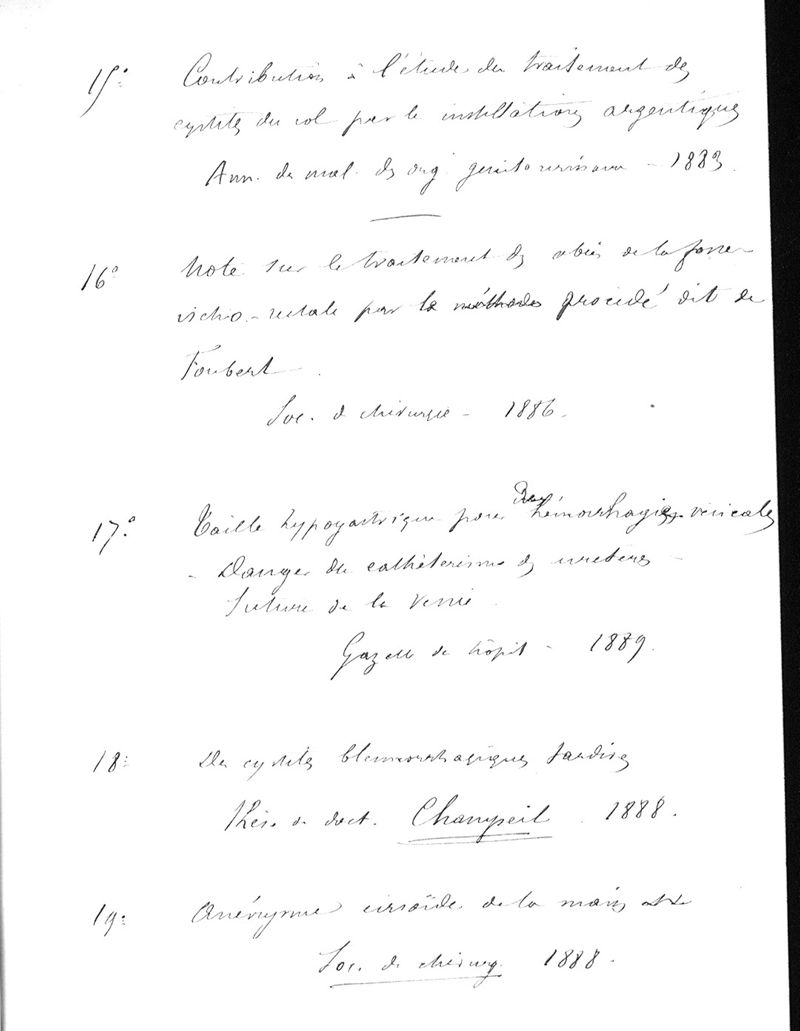 15° Contribution à l'étude du traitement des
cystites du col par les instillations argentiques
Ann. des mal. des org. genitourinaires – 1883.
16° Note sur le traitement des abcès de la fosse
ischio-rectale par la méthode procédé dit de
Foubert
Soc. de chirurgie – 1886.
17° Taille hypogastrique pour des hémorrhagies vesicales
– Danger du cathéterisme des ureteres –
Suture de la vessie
Gazette des hôpit – 1889.
18° Des cystites blennorrhagiques tardives
Thèse de doct. Champeil. 1888.
19° Anévrysme cirsoïde de la main
Soc. de chirurg. 1888.